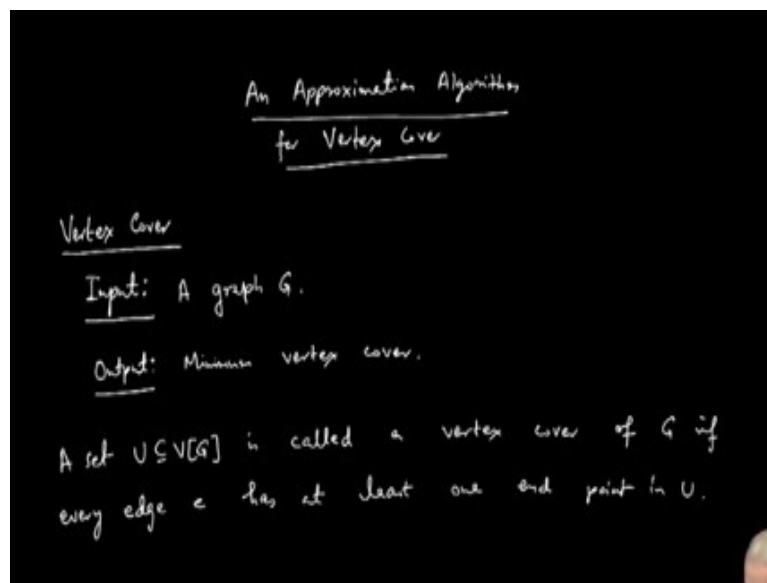 An Approximation Algorithm
for Vertex Cover
Vertex Cover
Input: A graph G.
Output: Minimum vertex cover.
A set U ⊆ V[G] is called a vertex cover of G if
every edge e has at least one end point in U.